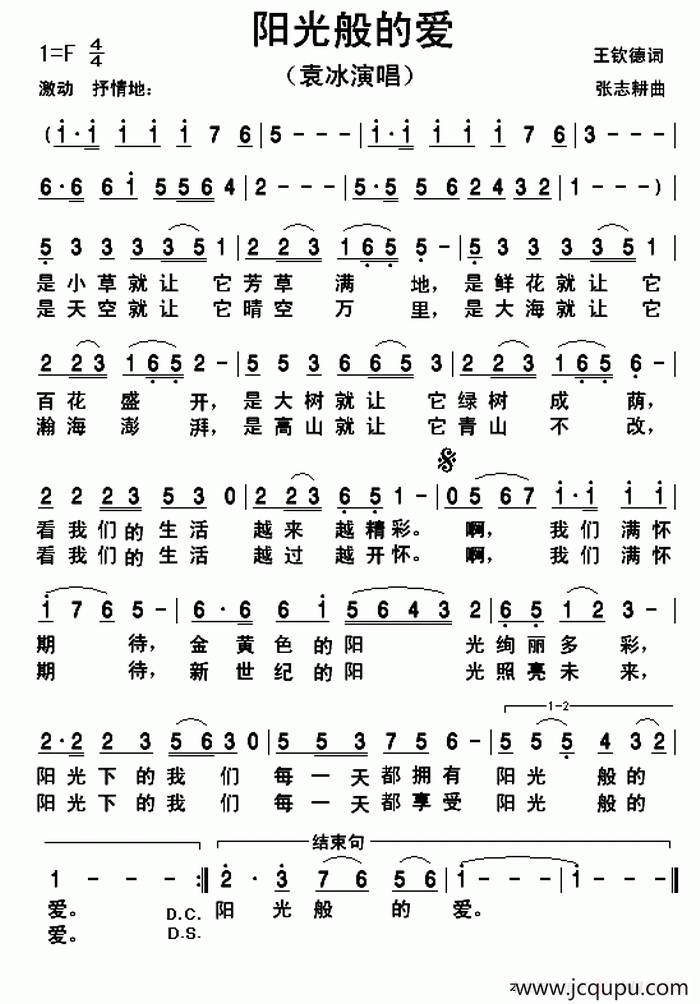 阳光般的爱
1=F 4/4
（袁冰演唱）
王钦德词
激动 抒情地：
张志耕曲
(i·i i i i 7 6 | 5 - - - | i·i i i i 7 6 | 3 - - - |
6·6 6 i 5 5 6 4 | 2 - - - | 5·5 5 5 6 2 4 3 2 | 1 - - - )|
5 3 3 3 3 5 1 | 2 2 3 1 6 5 5 - | 5 3 3 3 3 3 5 1 |
是小草就让它芳草满地，是鲜花就让它
是天空就让它晴空万里，是大海就让它
2 2 3 1 6 5 2 - | 5 5 3 6 5 5 1 | 2 2 3 1 6 5 5 - |
百花盛开，是大树就让它绿树成荫，
瀚海澎湃，是高山就让它青山不改，
2 2 2 3 5 3 0 | 2 2 3 6 5 1 - | 0 5 6 7 i·i i i |
看我们的生活越来越精彩。啊，我们满怀
看我们的生活越过越开怀。啊，我们满怀
i 7 6 5 - | 6·6 6 i 5 6 4 3 2 | 6 5 1 2 3 - |
期待，金黄色的阳光绚丽多彩，
期待，新世纪的阳光照亮未来，
1-2
2·2 2 3 5 6 3 0 | 5 5 3 7 5 6 - | 5 5 5 4 3 2 |
阳光下的我们每一天都拥有阳光般的
阳光下的我们每一天都享受阳光般的
结束句
1 - - - :‖ 2·3 7 6 5 6 | i - - - | i - - - ‖
爱。D.C. 阳光般的爱。
爱。D.S.
www.jcqupu.com